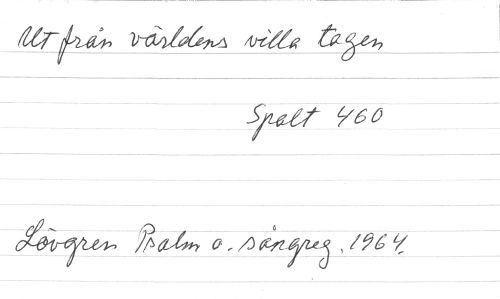 Ut från världens villa tagen
Spalt 460
Lövgren Psalm o. sångreg. 1964.